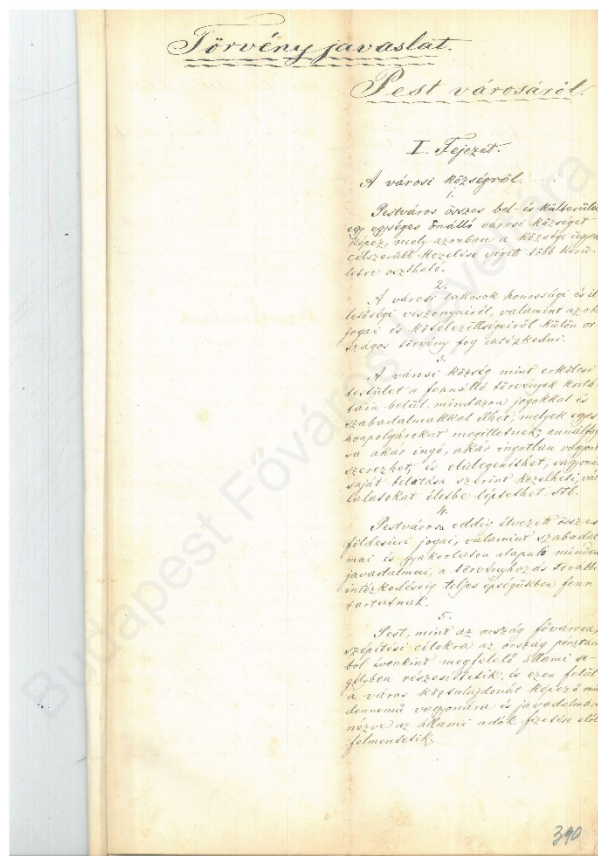 Törvény javaslat.
Pest városáról.
I. Fejezet.
A városi községről.
1.
Pestváros összes bel- és külterüle
egy egységes önálló városi községet
képez, mely azonban a községi ügyek
célszerűbb kezelése végett több kerü
letre osztható.
2.
A városi lakosok honossági és il
letőségi viszonyairól, valamint azok
jogai és kötelezettségeiről külön or
szágos törvény fog intézkedni.
3.
A városi község mint erkölcsi
testület a fennálló törvények korlá
tain belül, mindazon jogokkal és
szabadalmakkal élhet, melyek egyes
honpolgárokat megilletnek; annálfog
va akár ingó, akár ingatlan vagyont
szerezhet, és elidegeníthet, vagyonát
saját belátása szerint kezelheti, vál
lalatokat életbe léptethet stb.
4.
Pestvárosa eddig élvezett összes
földesúri jogai, valamint szabadal
mai és gyakorlaton alapuló minden
javadalmai, a törvényhozás további
intézkedéséig teljes épségükben fenn
tartatnak.
5.
Pest, mint az ország fővárosa,
szépítési célokra az ország pénztárá
ból évenkint megfelelő állami se
gélyben részesíttetik, és ezen felül
a város köztulajdonát képező min
dennemű vagyonára és javadalmára
nézve az állami adók fizetése alól
felmentetik.
390
Budapest Főváros Levéltára